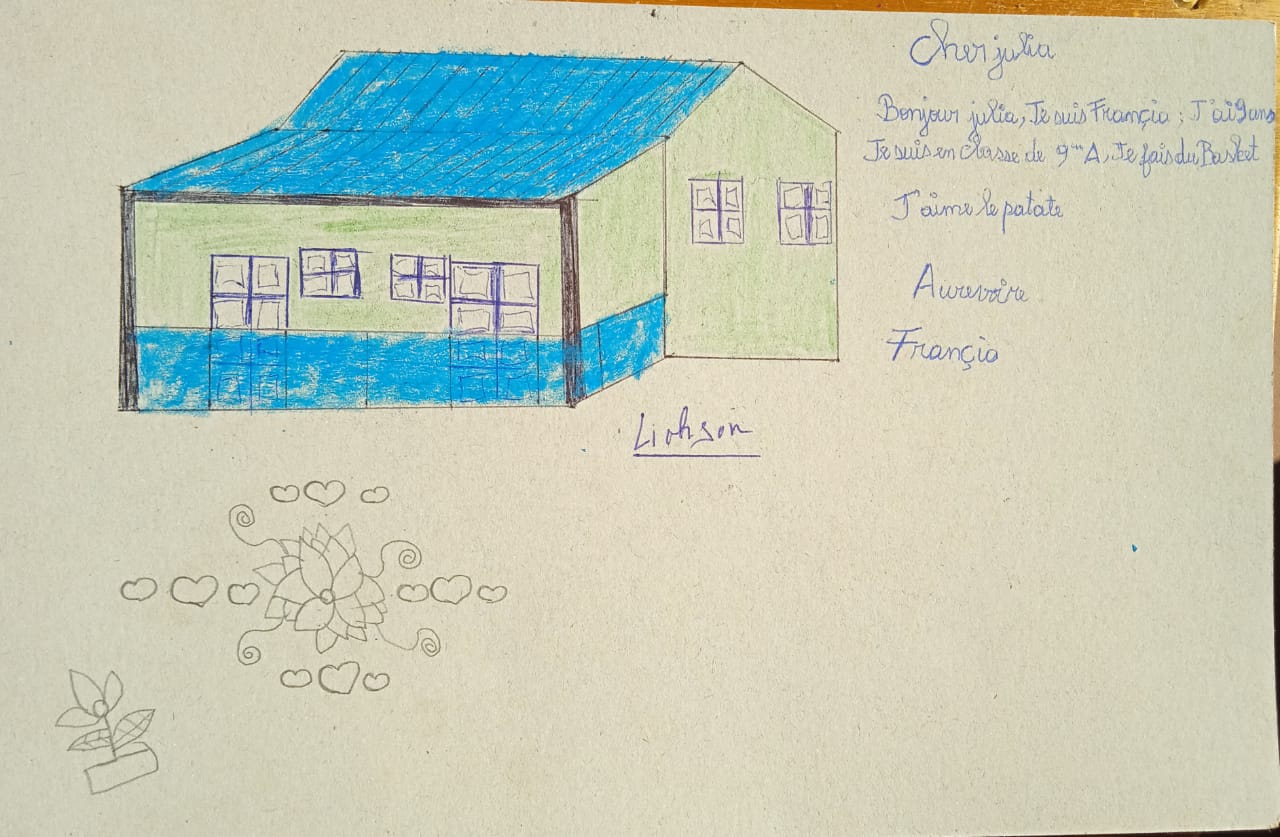 Cher julia
Bonjour julia, Je suis Françia ; J'ai 9 ans
Je suis en classe de 9ème A, Je fais du Basket
J'aime le patate
Aurevoire
Françia